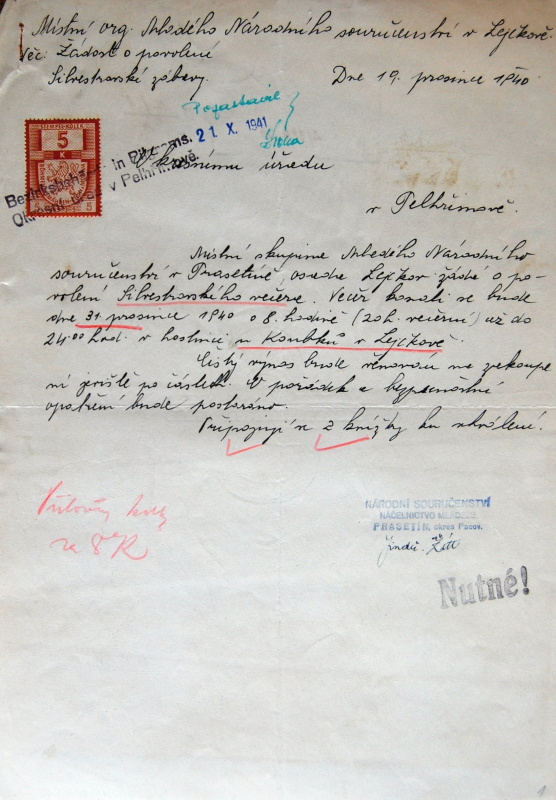 Místní org. Mladého Národního souručenství v Lejčkově.
Věc: Žádost o povolení
Silvestrovské zábavy.
Dne 19. prosince 1940
21. X. 1941
STEMPEL-KOLEK
5
K
5
Okresnímu úřadu
v Pelhřimově.
Místní skupina Mladého Národního
souručenství v Prasetíně, osada Lejčkov žádá o po-
volení Silvestrovského večera. Večer konati se bude
dne 31 prosince 1940 o 8. hodině (20 h. večerní) až do
24.00 hod. v hostinci u Koubků v Lejčkově.
Čistý výnos bude věnován na zakoupe
ní jeviště po částech. O pořádek a bezpečnostní
opatření bude postaráno.
Připojují se 2 knížky ku schválení.
NÁRODNÍ SOURUČENSTVÍ
NÁČELNICTVO MLÁDEŽE
PRASETÍN, okres Pacov.
za 8 K
Nutné!
1